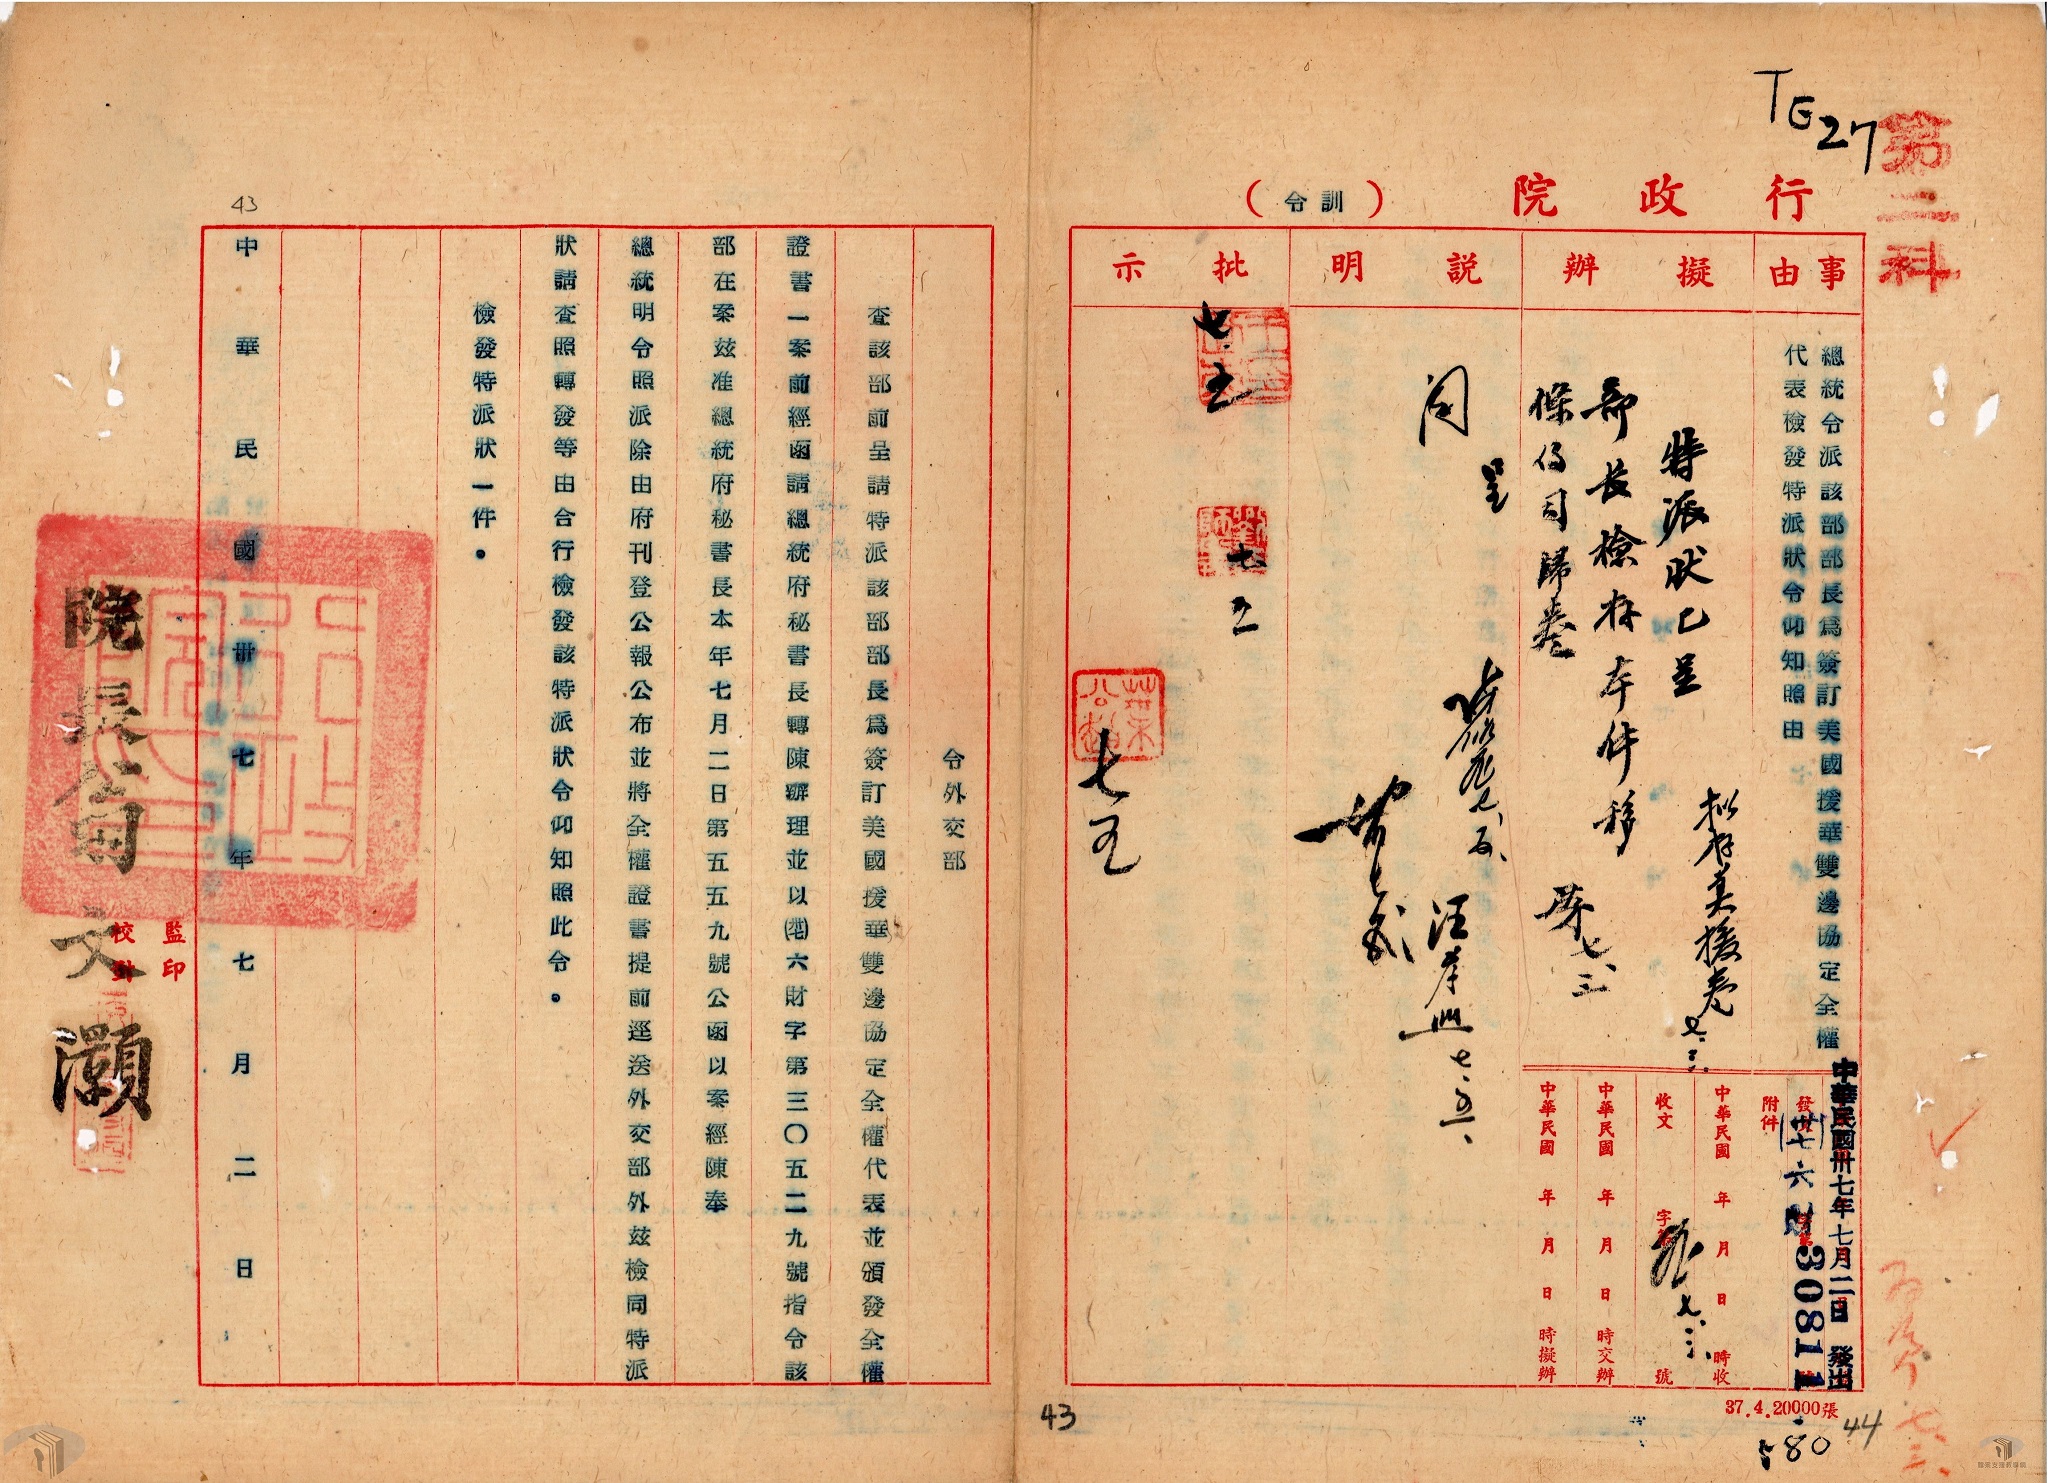 TG27
第三科
行政院
（訓令）
事由
總統令派該部部長為簽訂美國援華雙邊協定全權
代表檢發特派狀令仰知照由
擬辦
特派狀已呈
部長檢存本件移
條約司歸卷
擬存美援卷 七.三.
說明
呈
汪孝熙 七.五、
批示
七.五
七五
葉公超
七五
中華民國卅七年七月二日 發出
30811
附件
中華民國 年 月 日 時收
收文 字第 號
七.三.
中華民國 年 月 日 時交辦
中華民國 年 月 日 時擬辦
37.4.20000張
580
44
43
令外交部
查該部前呈請特派該部部長為簽訂美國援華雙邊協定全權代表並頒發全權
證書一案前經函請總統府秘書長轉陳辦理並以(卅七)六財字第三〇五二九號指令該
部在案茲准總統府秘書長本年七月二日第五五九號公函以案經陳奉
總統明令照派除由府刊登公報公布並將全權證書提前逕送外交部外茲檢同特派
狀請查照轉發等由合行檢發該特派狀令仰知照此令。
檢發特派狀一件。
43
中華民國卅七年七月二日
監印
校對
院長翁文灝